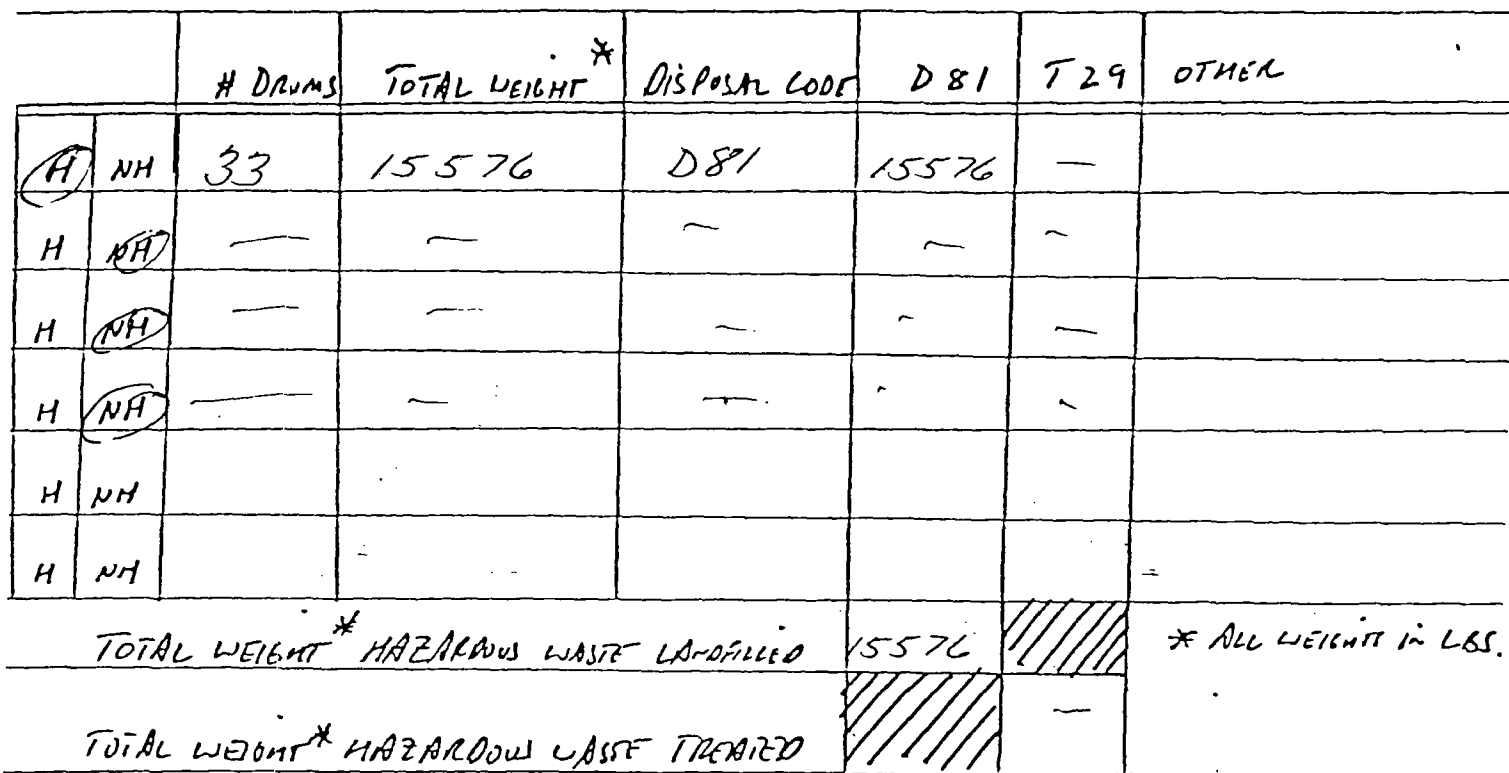 # DRUMS TOTAL WEIGHT * DISPOSAL CODE D 81 T 29 OTHER
H NH 33 15576 D81 15576 —
H NH — — — — —
H NH — — — — —
H NH — — — — —
H NH
H NH
TOTAL WEIGHT * HAZARDOUS WASTE LANDFILLED 15576 * ALL WEIGHTS IN LBS.
TOTAL WEIGHT * HAZARDOUS WASTE TREATED —